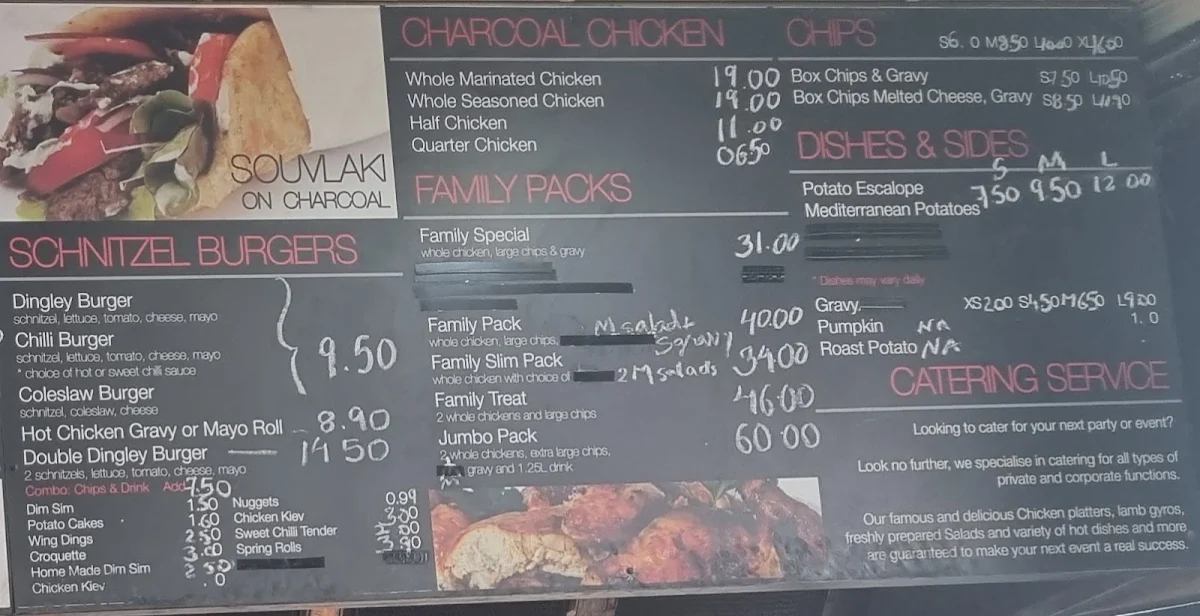 SOUVLAKI
ON CHARCOAL
SCHNITZEL BURGERS
Dingley Burger
schnitzel, lettuce, tomato, cheese, mayo
Chilli Burger
schnitzel, lettuce, tomato, cheese, mayo
* choice of hot or sweet chilli sauce
9.50
Coleslaw Burger
schnitzel, coleslaw, cheese
Hot Chicken Gravy or Mayo Roll 8.90
Double Dingley Burger 14 50
2 schnitzels, lettuce, tomato, cheese, mayo
Combo: Chips & Drink Add 7.50
Dim Sim 1.50
Potato Cakes 1.60
Wing Dings 2 50
Croquette 3.00
Home Made Dim Sim 2 50
Chicken Kiev
Nuggets 0.99
Chicken Kiev
Sweet Chilli Tender
Spring Rolls
CHARCOAL CHICKEN
Whole Marinated Chicken 19.00
Whole Seasoned Chicken 19.00
Half Chicken 11.00
Quarter Chicken 06.50
FAMILY PACKS
Family Special 31.00
whole chicken, large chips & gravy
Family Pack M salads 40.00
whole chicken, large chips, S gravy
Family Slim Pack 34.00
whole chicken with choice of 2 M salads
Family Treat 46.00
2 whole chickens and large chips
Jumbo Pack 60 00
2 whole chickens, extra large chips,
gravy and 1.25L drink
CHIPS
Box Chips & Gravy S7.50 L10.50
Box Chips Melted Cheese, Gravy S8.50
DISHES & SIDES
S M L
Potato Escalope 7 50 9.50 12 00
Mediterranean Potatoes
* Dishes may vary daily
Gravy XS 2.00 S4.50 M6.50
Pumpkin NA
Roast Potato NA
CATERING SERVICE
Looking to cater for your next party or event?
Look no further, we specialise in catering for all types of
private and corporate functions.
Our famous and delicious Chicken platters, lamb gyros,
freshly prepared Salads and variety of hot dishes and more
are guaranteed to make your next event a real success.